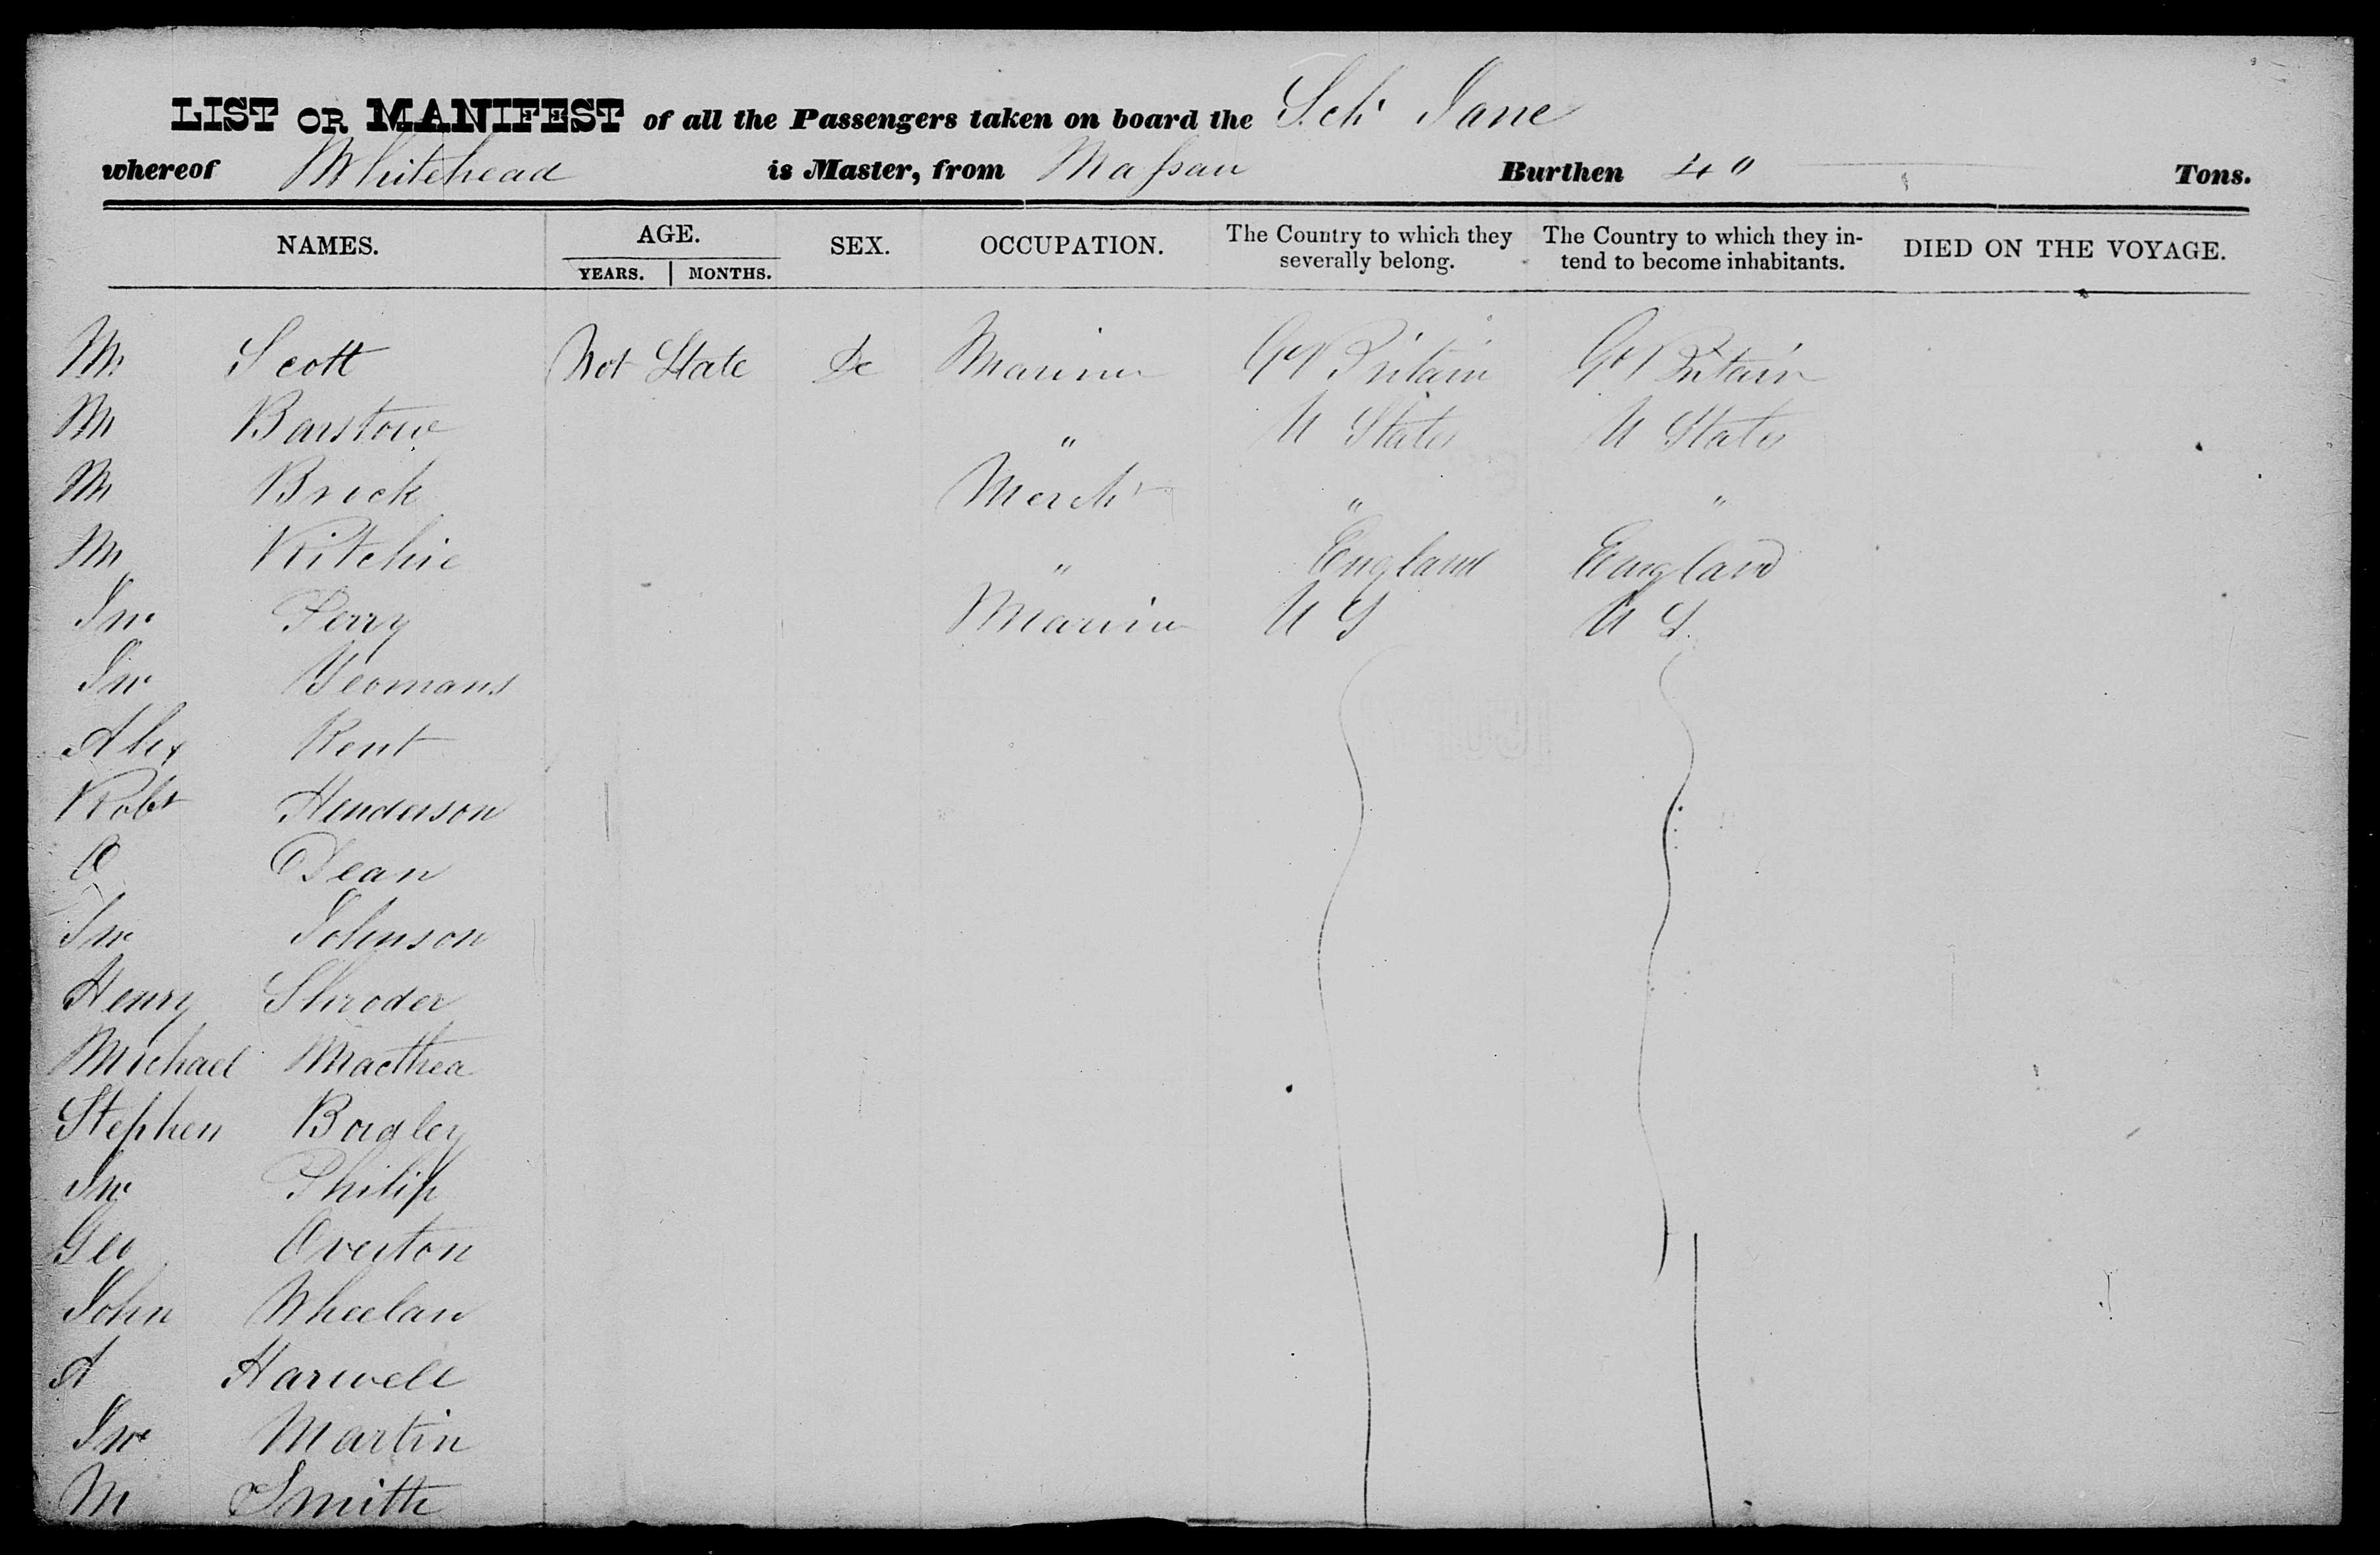 LIST OR MANIFEST of all the Passengers taken on board the Sch Jane
whereof Whitehead is Master, from Nassau Burthen 40 Tons.
NAMES. AGE. SEX. OCCUPATION. The Country to which they severally belong. The Country to which they in-tend to become inhabitants. DIED ON THE VOYAGE.
YEARS. MONTHS.
Mr Scott Not State Mariner Gt Britain Gt Britain
Mr Barstow " U States U States
Mr Brick Mercht " "
Mr Ritchie " England England
Jno Perry Mariner U S U S
Jno Yeomans
Alex Kent
Robt Henderson
Dean
Jno Johnson
Henry Shroder
Michael Macthea
Stephen Bagley
Jno Philip
Geo Overton
John Wheelan
A Harwell
Jno Martin
M Smith